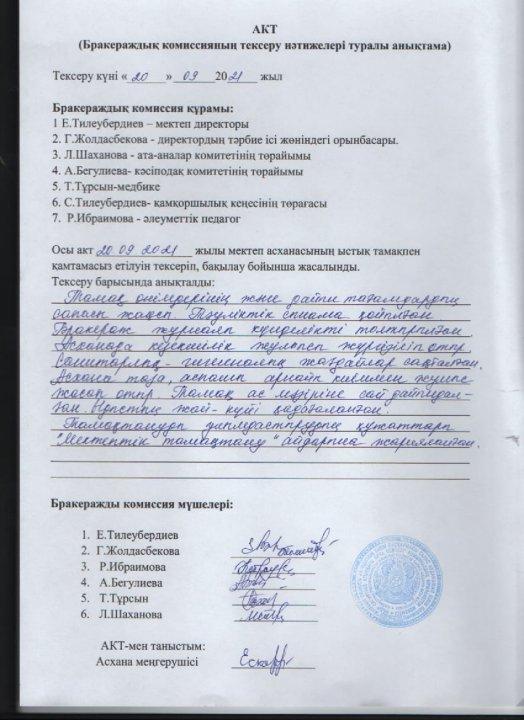 АКТ
(Бракераждық комиссияның тексеру нәтижелері туралы анықтама)
Тексеру күні « 20 » 09 2021 жыл
Бракераждық комиссия құрамы:
1 Е.Тилеубердиев – мектеп директоры
2. Г.Жолдасбекова - директордың тәрбие ісі жөніндегі орынбасары.
3. Л.Шаханова - ата-аналар комитетінің төрайымы
4. А.Бегулиева- кәсіподақ комитетінің төрайымы
5. Т.Тұрсын-медбике
6. С.Тилеубердиев- қамқоршылық кеңесінің төрағасы
7. Р.Ибраимова - әлеуметтік педагог
Осы акт 20 09 2021 жылы мектеп асханасының ыстық тамақпен
қамтамасыз етілуін тексеріп, бақылау бойынша жасалынды.
Тексеру барысында анықталды:
Тамақ өнімдерінің және дайын тағамдардың
сапасы жақсы. Тәуліктік сынама қойылған.
Бракераж журналы күнделікті толтырылған.
Асханада күшейтілген жүріп отыр.
Санитарлық - гигиеналық жағдайлар сақталған.
Асхана таза, аспазшы арнайы киіммен жұмыс
жасап отыр. Тамақ ас мәзіріне сай дайындал-
ған. Ыдыстың жай-күйі қадағаланған.
Тамақтануды ұйымдастырудың құжаттары
"Мектептік тамақтану" айдарында жарияланған.
Бракеражды комиссия мүшелері:
1. Е.Тилеубердиев
2. Г.Жолдасбекова
3. Р.Ибраимова
4. А.Бегулиева
5. Т.Тұрсын
6. Л.Шаханова
АКТ-мен таныстым:
Асхана меңгерушісі